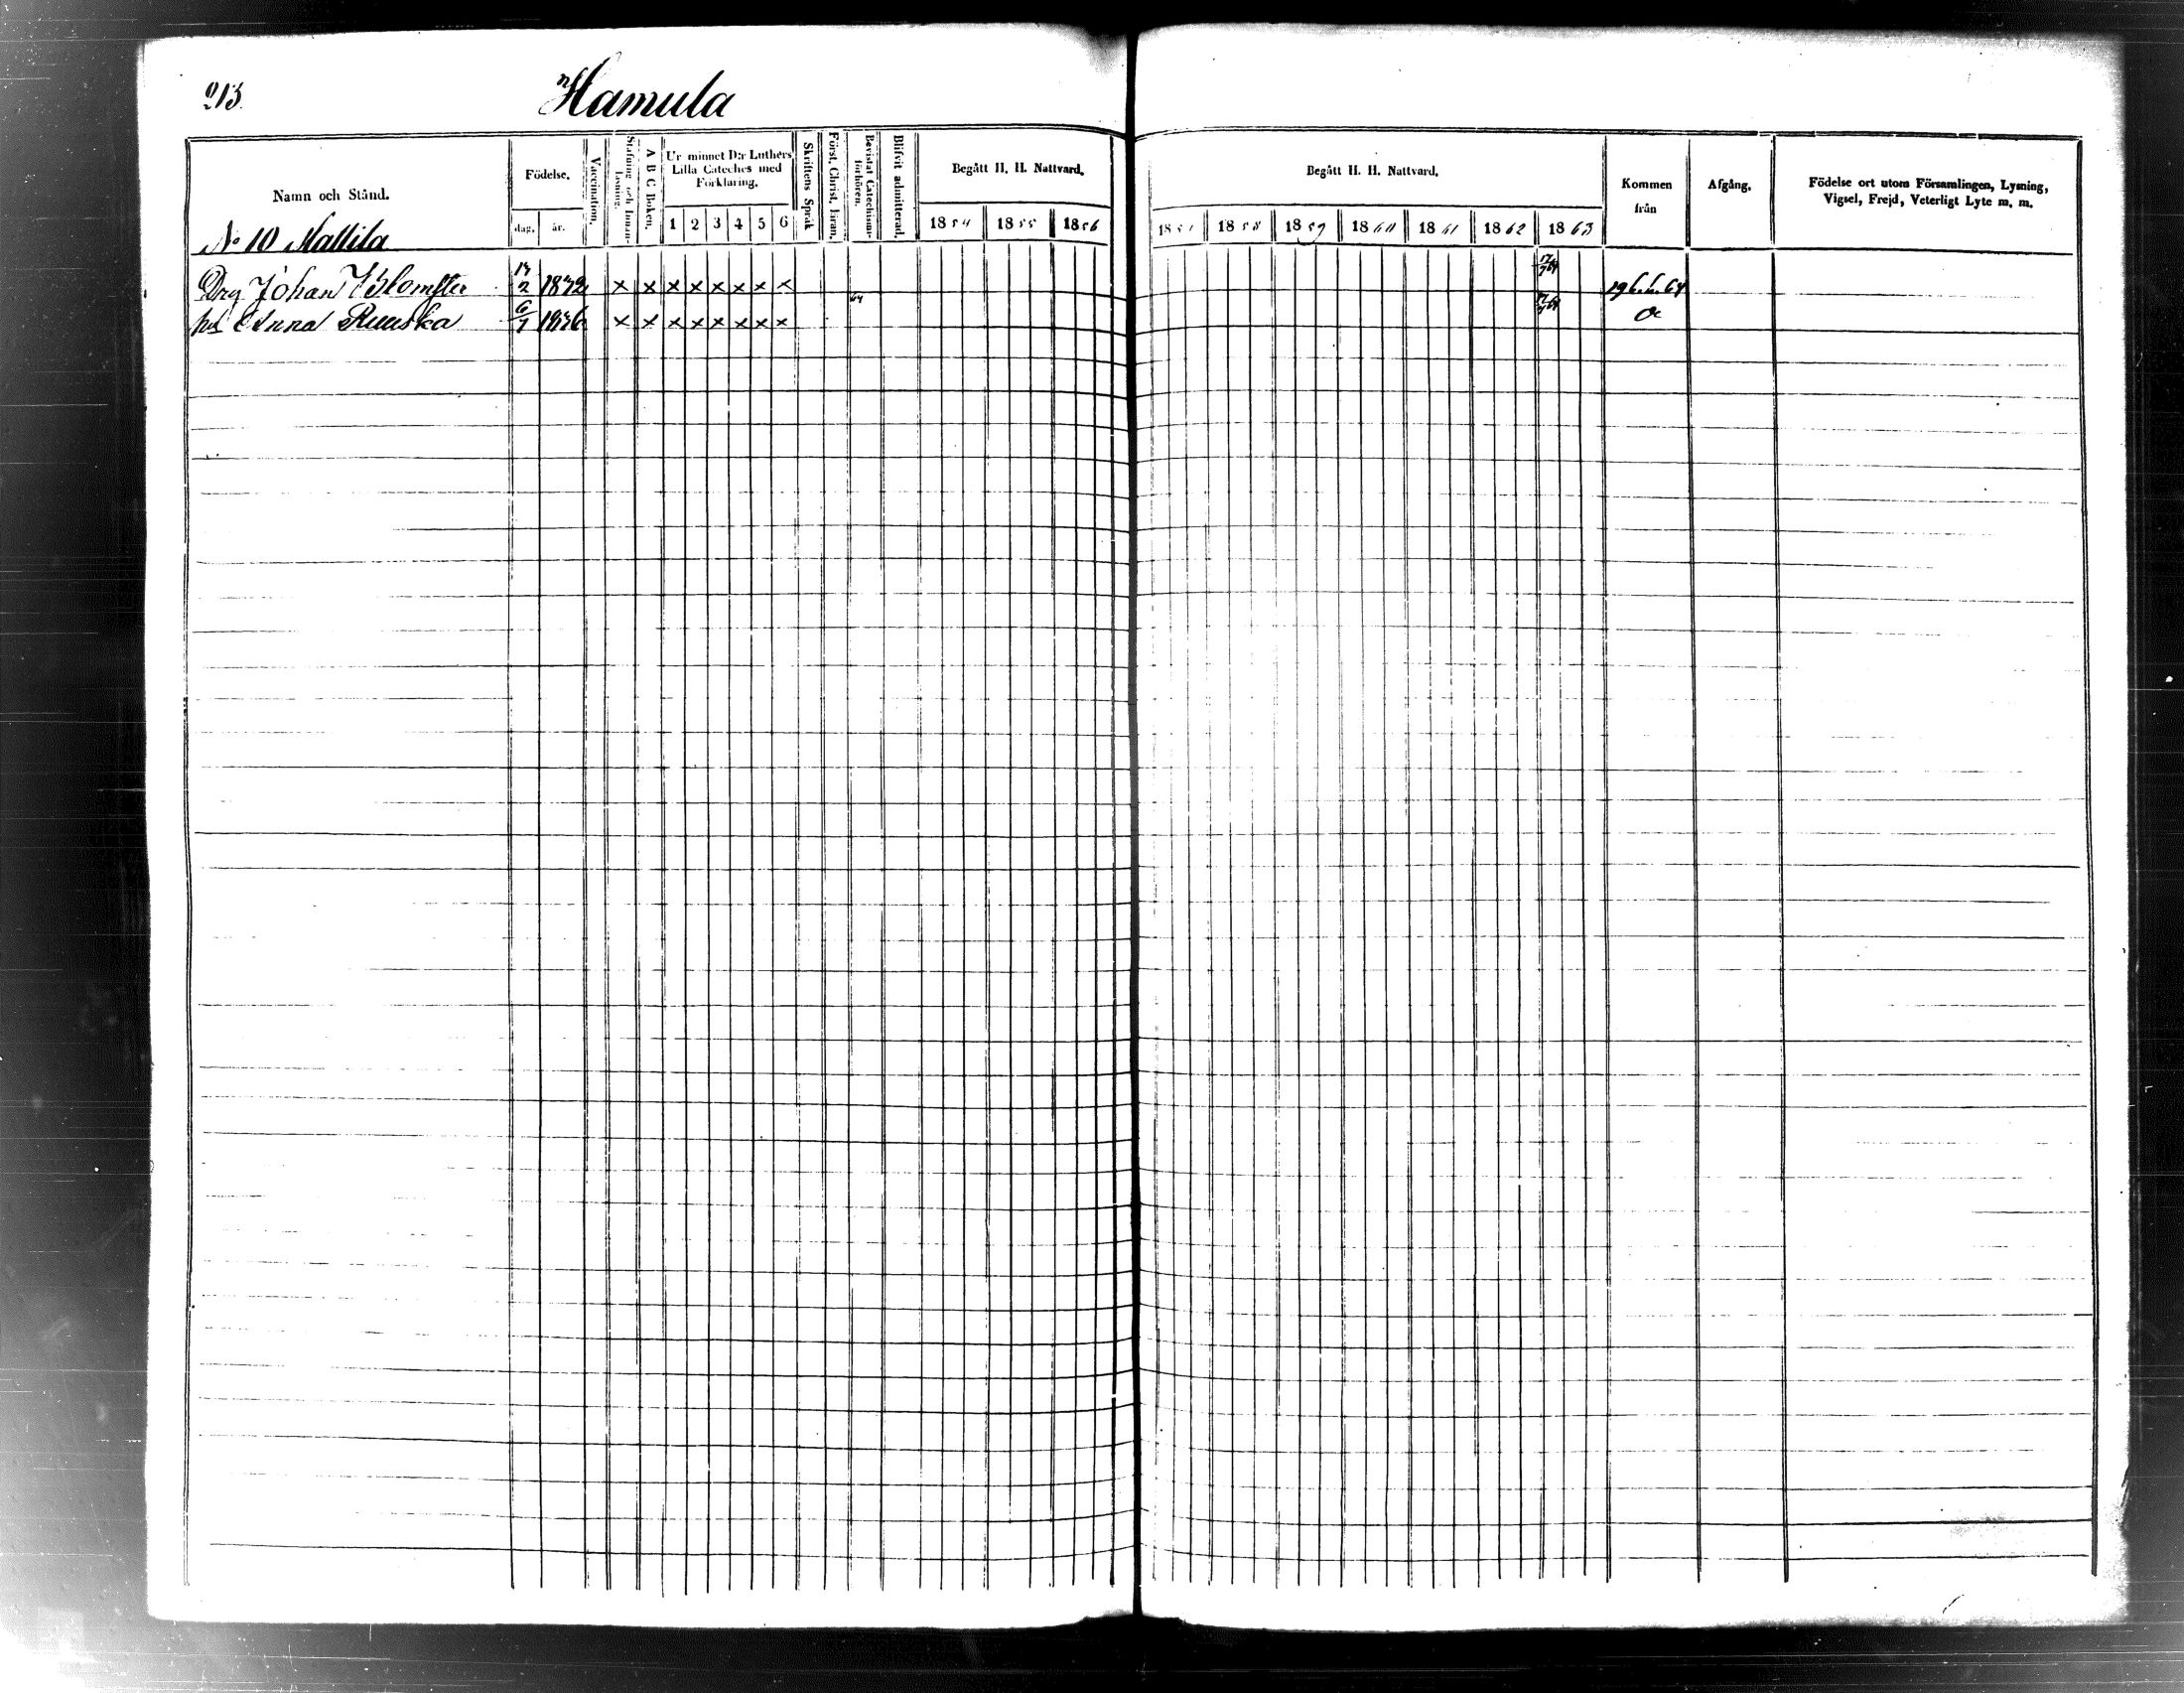 213.
Hamula
Namn och Stånd.
Födelse.
dag. år.
Vaccination.
Stafning och Innanläsning.
A B C Boken.
Ur minnet D:r Luthers Lilla Cateches med Förklaring.
1 2 3 4 5 6
Skriftens Språk
Först. Christ. Läran.
Bevistat Catechismiförhören.
Blifvit admitterad.
Begått H. H. Nattvard.
1854 1855 1856
Begått H. H. Nattvard.
1857 1858 1859 1860 1861 1862 1863
Kommen från
Afgång.
Födelse ort utom Församlingen, Lysning, Vigsel, Frejd, Veterligt Lyte m. m.
No 10 Mattila
Drg Johan Blomster 2 1832 x x x x x x x x
hu Anna Ruuska 6/7 1836 x x x x x x x x 64